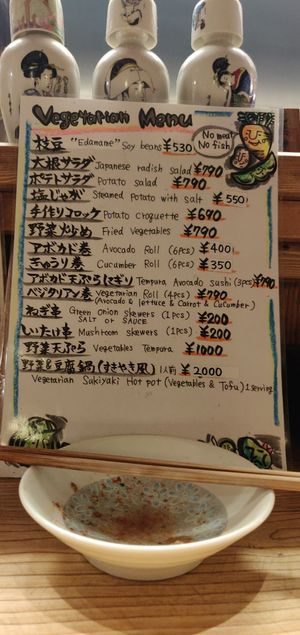 Vegetarian Menu
No meat
No fish
枝豆 "Edamame" Soy beans ¥530
大根サラダ Japanese radish salad ¥790
ポテトサラダ Potato salad ¥790
塩じゃが Steamed Potato with salt ¥550
手作りコロッケ Potato croquette ¥690
野菜炒め Fried Vegetables ¥790
アボカド巻 Avocado Roll (6pcs) ¥400
きゅうり巻 Cucumber Roll (6pcs) ¥350
アボカド天ぷらにぎり Tempura Avocado sushi (3pcs) ¥790
ベジタリアン巻 Vegetarian Roll (4pcs) ¥790
(Avocado & lettuce & Carrot & Cucumber)
ねぎ串 Green Onion skewers (1pcs) ¥200
SALT or SAUCE
しいたけ串 Mushroom skewers (1pcs) ¥200
野菜天ぷら Vegetables Tempura ¥1000
野菜&豆腐鍋(すきやき風) 1人前 ¥2000
Vegetarian Sukiyaki Hot pot (Vegetables & Tofu) 1 serving